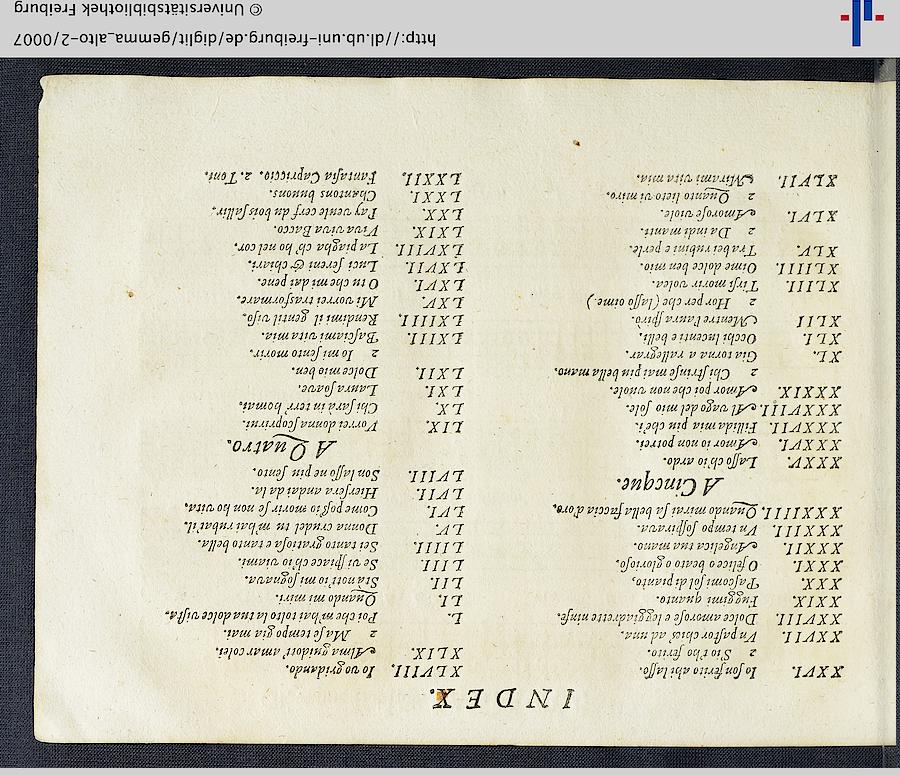 INDEX.
XXVI. Io son ferito ahi lasso.
2 Sio t'ho ferito.
XXVII. Vn pastor chiese ad vna.
XXVIII. Dolce amorose e leggiadrette ninfe.
XXIX. Fuggimi quanto.
XXX. Pascomi sol di pianto.
XXXI. O felice o beato o glorioso.
XXXII. Angelica tua mano.
XXXIII. Vn tempo sospirava.
XXXIIII. Quando mirai sa bella faccia d'oro.
A Cincque.
XXXV. Lasso ch'io ardo.
XXXVI. Amor io non potrei.
XXXVII. Fillida mia piu ch'i.
XXXVIII. Al vago del mio sole.
XXXIX. Amor poi che non vuole.
2 Chi strinse mai piu bella mano.
XL. Gia torna a rallegrar.
XLI. Occhi lucenti e belli.
XLII Mentre l'aura spirò.
2 Hor per che (lasso oime)
XLIII. Tirsi morir volea.
XLIIII. Oime dolce ben mio.
XLV. Tra bei rubini e perle.
2 Da indi inanti.
XLVI. Amorose viole.
2 Quanto lieto vi miro.
XLVII. Mirami vita mia.
XLVIII. Io vo gridando.
XLIX. Alma guidoti amar colei.
2 Ma se tempo gia mai.
L. Poi che m'hai tolto la tua dolce vista.
LI. Quando mi miri.
LII. Sta notti io mi sognava.
LIII. Se vi spiace ch'io v'ami.
LIIII. Sei tanto gratiosa e tanto bella.
LV. Donna crudel tu m'hai rubat'il.
LVI. Come possio morir se non ho vita.
LVII. Hiersera andai da la.
LVIII. Son lasso ne piu sento.
A Quatro.
LIX. Vorrei donna scoprirvi.
LX. Chi sarà in terr' homai.
LXI. Laura soave.
LXII. Dolce mio ben.
2 Io mi sento morir.
LXIII. Basciami vita mia.
LXIIII. Rendimi il gentil viso.
LXV. Mi vorrei trasformare.
LXVI. O tu che mi dai pene.
LXVII. Luci sereni & chiari.
LXVIII La piagha ch'ho nel cor.
LXIX. Viva viva Bacco.
LXX. Pay veu le cerf du bois sallir.
LXXI. Chantons buuons.
LXXII. Fantasia Capriccio. 2. Toni.
http://dl.ub.uni-freiburg.de/diglit/gemma_alto-2/0007
© Universitätsbibliothek Freiburg